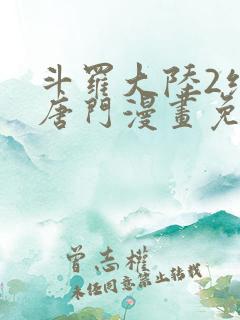 斗羅大陸2
唐門漫畫免
曾志權
未经同意禁止转载